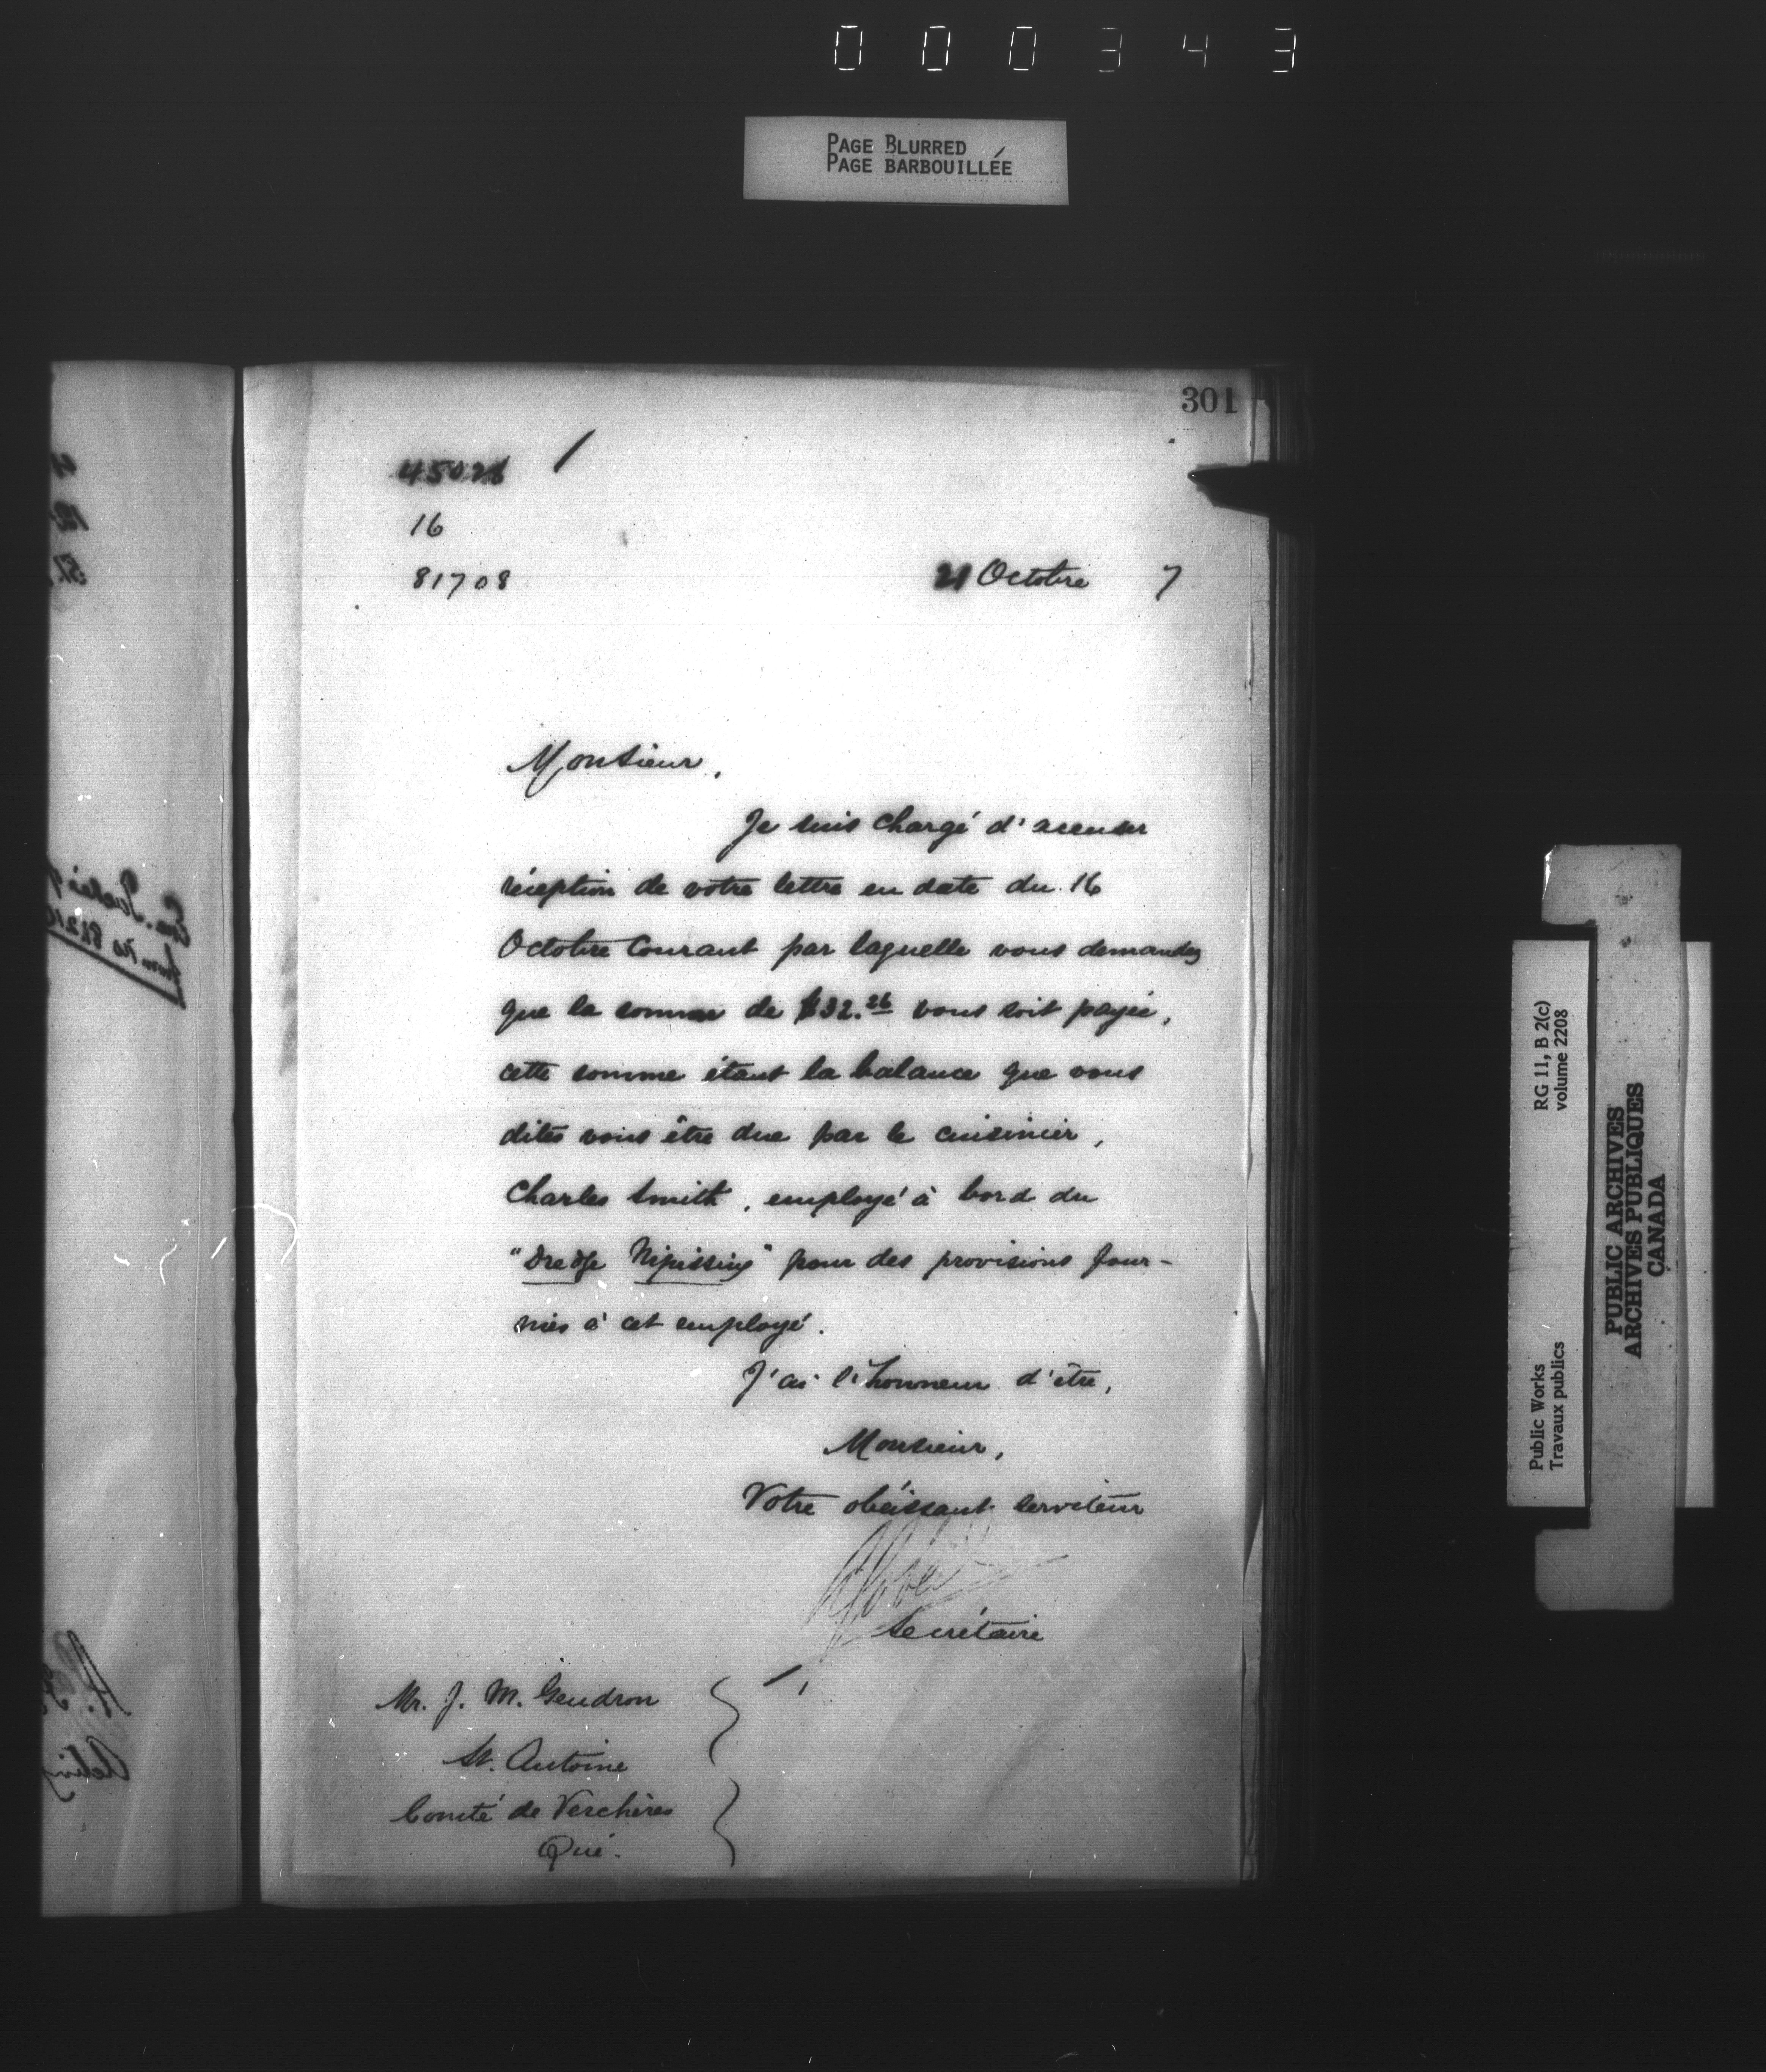 000343
PAGE BLURRED
PAGE BARBOUILLÉE
301
16
81708
21 Octobre 7
Monsieur,
Je suis chargé d'accuser
réception de votre lettre en date du 16
Octobre Courant par laquelle vous demandez
que la somme de $32.26 vous soit payée,
cette somme étant la balance que vous
dites vous être due par le cuisinier,
Charles Smith, employé à bord du
"Dredge Nipissing" pour des provisions four-
nies à cet employé.
J'ai l'honneur d'être,
Monsieur,
Votre obéissant serviteur
Secrétaire
Mr. J. M. Gendron
St. Antoine
Comté de Verchères
Qué.
RG 11, B 2(c)
volume 2208
Public Works
Travaux publics
PUBLIC ARCHIVES
ARCHIVES PUBLIQUES
CANADA